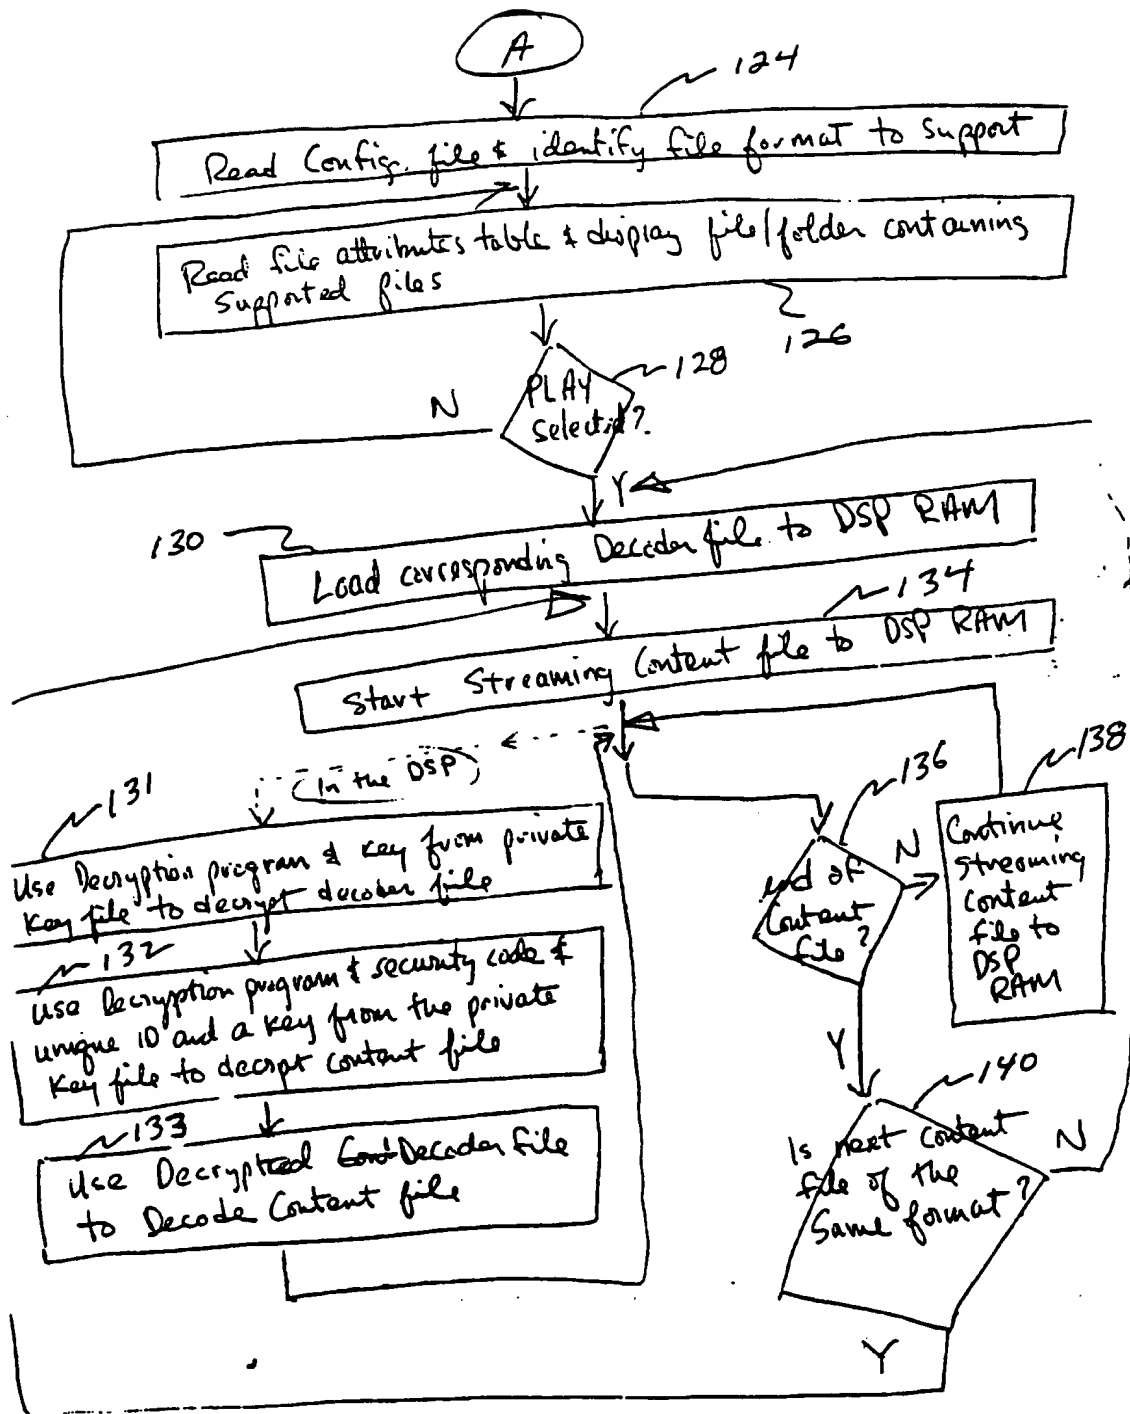 A
124
Read Config. file & identify file format to support
Read file attributes table & display file/folder containing
Supported files
126
128
PLAY
selected?
N
Y
130
Load corresponding Decoder file to DSP RAM
134
Start Streaming Content file to DSP RAM
(In the DSP)
131
Use Decryption program & Key from private
Key file to decrypt decoder file
132
Use Decryption program & security code &
unique ID and a key from the private
Key file to decrpt content file
133
Use Decrypted Decoder file
to Decode Content file
136
end of
Content
file?
N
Y
138
Continue
Streaming
Content
file to
DSP
RAM
140
Is next content
file of the
Same format?
N
Y